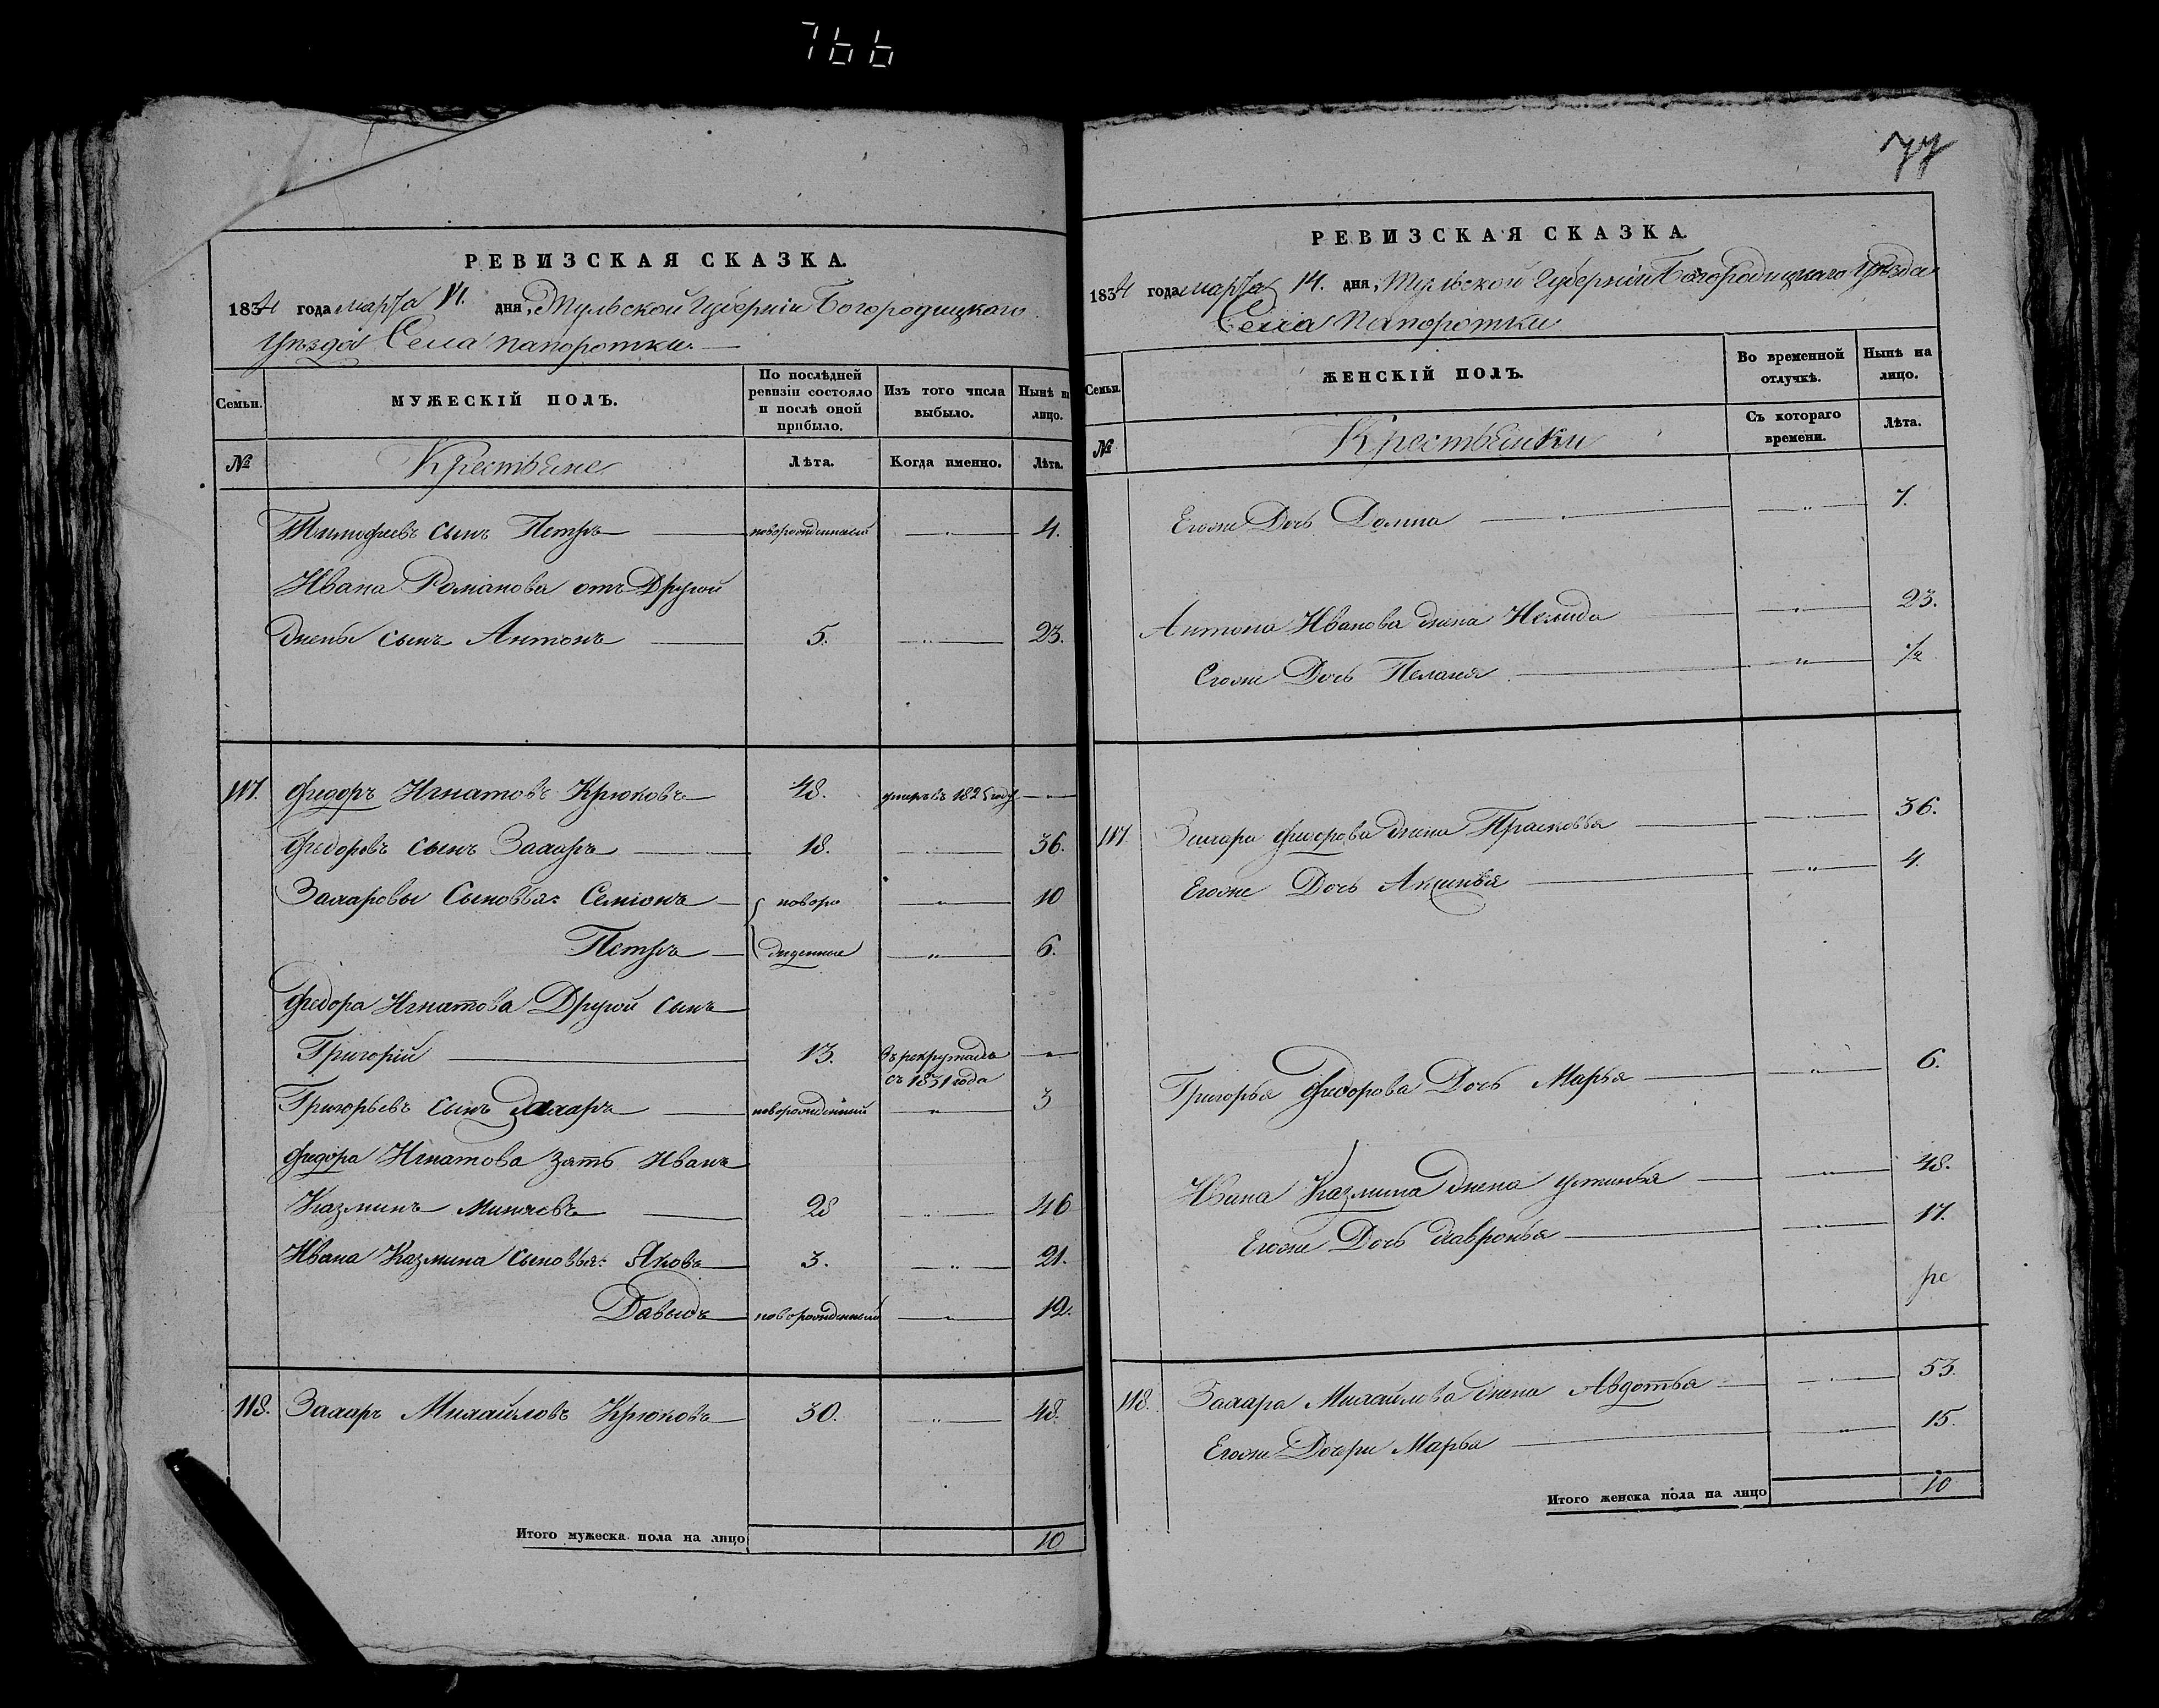 766
РЕВИЗСКАЯ СКАЗКА.
1834 года марта 14. дня, Тульской Губерніи Богородицкаго
Уѣзда Села Папоротки.
Семьи.
МУЖЕСКІЙ ПОЛЪ.
По послѣдней ревизіи состояло и послѣ оной прибыло.
Изъ того числа выбыло.
Нынѣ на лицо.
№
Крестьяне
Лѣта.
Когда именно.
Лѣта.
Тимофеевъ сынъ Петръ новорожденный " 4.
Ивана Романова отъ Другой
жены сынъ Антонъ 5. " 23.
117. Федоръ Игнатовъ Крюковъ 48. умеръ въ 1825 году "
Федоровъ сынъ Захаръ 18. " 36.
Захаровы Сыновья: Семіонъ новоро " 10
Петръ жденные " 6.
Федора Игнатова Другой сынъ
Григорій 13. въ рекрутахъ съ 1831 года "
Григорьевъ сынъ Захаръ новорожденный " 3
Федора Игнатова зять Иванъ
Казминъ Миняевъ 28 " 46
Ивана Казмина сыновья: Яковъ 3. " 21.
Давыдъ новорожденный " 12.
118. Захаръ Михайловъ Крюковъ 30. " 48.
Итого мужеска пола на лицо 10
77
РЕВИЗСКАЯ СКАЗКА.
1834 года марта 14. дня, Тульской Губерніи Богородицкаго Уѣзда
Села Папоротки
Семьи.
ЖЕНСКІЙ ПОЛЪ.
Во временной отлучкѣ.
Нынѣ на лицо.
Съ котораго времени.
Лѣта.
№
Крестьянки
Егоже Дочь Домна " 7.
Антона Иванова жена " 23.
Егоже Дочь Пелагея " 1/2
117. Захара Федорова жена Прасковья " 36.
Егоже Дочь Аксинья " 4.
Григорья Федорова Дочь Марья " 6.
Ивана Казмина жена Устинья " 48.
Егоже Дочь Хавронья " 17.
118. Захара Михайлова жена Авдотья " 53.
Егоже Дочери Марья " 15.
Итого женска пола на лицо 10